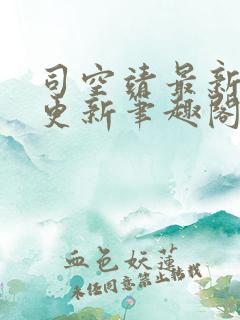 司空靖最新
更新笔趣阁
血色妖莲
未经同意禁止转载